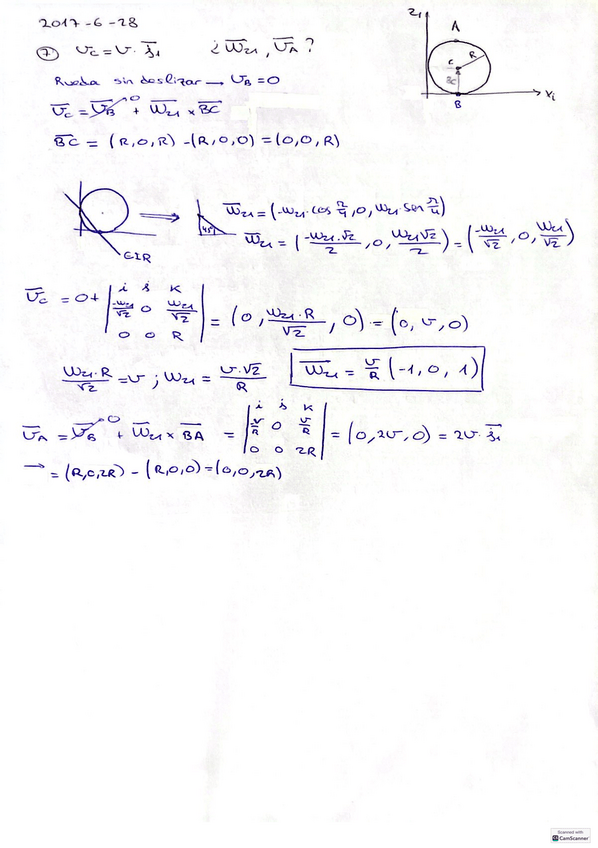 2017-6-28
Z₁
A
⑦ v̅c = v · j̅₁ ¿ω̅₂₁, v̅A?
C
R
BC
Rueda sin deslizar → v̅B = 0
B
X₁
v̅c = v̅B⁰ + ω̅₂₁ × B̅C̅
B̅C̅ = (R,0,R) - (R,0,0) = (0,0,R)
45°
ω̅₂₁ = (-ω₂₁·cos π/4, 0, ω₂₁ sen π/4)
ω̅₂₁ = (-ω₂₁·√2/2, 0, ω₂₁√2/2) = (-ω₂₁/√2, 0, ω₂₁/√2)
EIR
v̅c = 0 + |i j k; -ω₂₁/√2 0 ω₂₁/√2; 0 0 R| = (0, ω₂₁·R/√2, 0) = (0, v, 0)
ω₂₁·R/√2 = v ; ω₂₁ = v·√2/R
ω̅₂₁ = v/R (-1, 0, 1)
v̅A = v̅B⁰ + ω̅₂₁ × B̅A̅ = |i j k; -v/R 0 v/R; 0 0 2R| = (0, 2v, 0) = 2v · j̅₁
→ = (R,0,2R) - (R,0,0) = (0,0,2R)
Scanned with
CS CamScanner